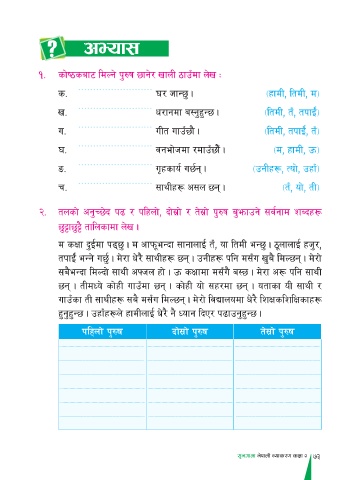 ? अभ्यास
१. कोष्ठकबाट मिल्ने पुरुष छानेर खाली ठाउँमा लेख :
क. .................... घर जान्छु । (हामी, तिमी, म)
ख. .................... धरानमा बस्नुहुन्छ । (तिमी, तँ, तपाईं)
ग. .................... गीत गाउँछौ । (तिमी, तपाईं, तँ)
घ. .................... वनभोजमा रमाउँछौं । (म, हामी, ऊ)
ङ. .................... गृहकार्य गर्छन् । (उनीहरू, त्यो, उहाँ)
च. .................... साथीहरू असल छन् । (तँ, यो, ती)
२. तलको अनुच्छेद पढ र पहिलो, दोस्रो र तेस्रो पुरुष बुझाउने सर्वनाम शब्दहरू
छुट्टाछुट्टै तालिकामा लेख ।
म कक्षा दुईमा पढ्छु । म आफूभन्दा सानालाई तँ, या तिमी भन्छु । ठूलालाई हजुर,
तपाईं भन्ने गर्छु । मेरा धेरै साथीहरू छन् । उनीहरू पनि मसँग खुबै मिल्छन् । मेरो
सबैभन्दा मिल्दो साथी अफ्जल हो । ऊ कक्षामा मसँगै बस्छ । मेरा अरू पनि साथी
छन् । तीमध्ये कोही गाउँमा छन् । कोही यो सहरमा छन् । यताका यी साथी र
गाउँका ती साथीहरू सबै मसँग मिल्छन् । मेरो विद्यालयमा धेरै शिक्षकशिक्षिकाहरू
हुनुहुन्छ । उहाँहरूले हामीलाई धेरै नै ध्यान दिएर पढाउनुहुन्छ ।
पहिलो पुरुष दोस्रो पुरुष तेस्रो पुरुष
नेपाली व्याकरण कक्षा २ ७३